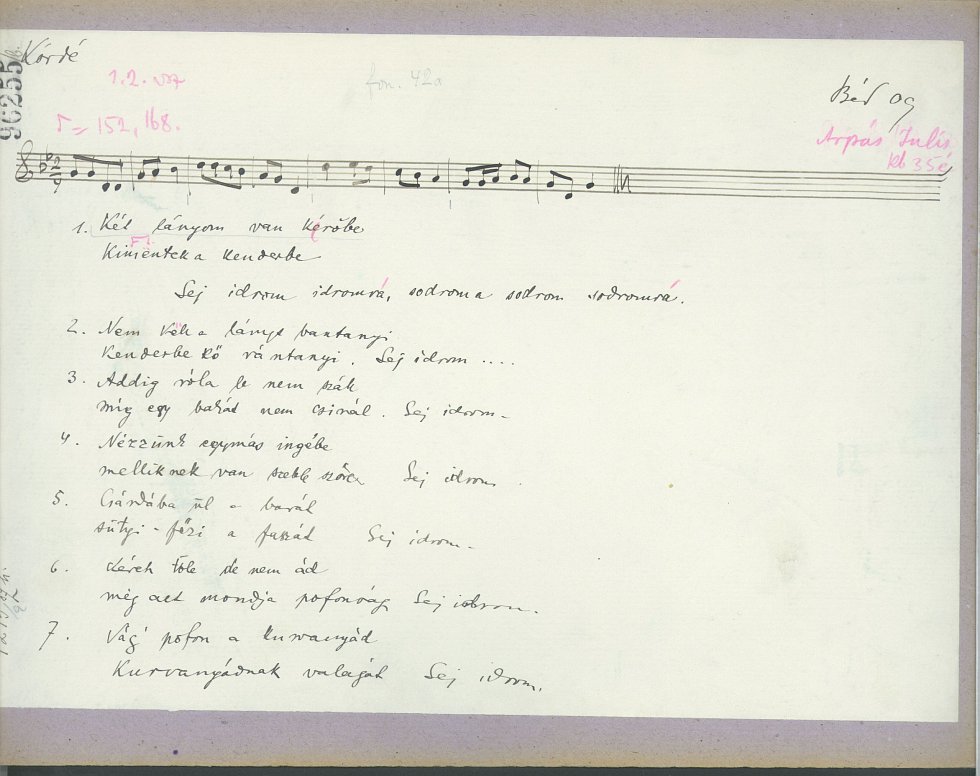 Kórdé
96255
1.2. vsz
fon. 42a
Béd 09
= 152, 168.
Árpás Julis
kb 35 é
1. Két lányom van kérőbe
Kimentek a kenderbe
Sej idrom idromrá, sodroma sodrom sodromrá.
2. Nem kék a lányt bántanyi
kenderbe kő rántanyi. Sej idrom ....
3. Addig róla le nem szák
míg egy barát nem csinál. Sej idrom -
4. Nézzünk egymás ingébe
melliknek van szebb szőre Sej idrom
5. Csárdába ül a barát
sütyi-főzi a faszát Sej idrom -
6. Kérek tőle de nem ád
még azt mondja pofonvág Sej idrom.
7. Vág' pofon a kurvanyád
Kurvanyádnak valagát Sej idrom.